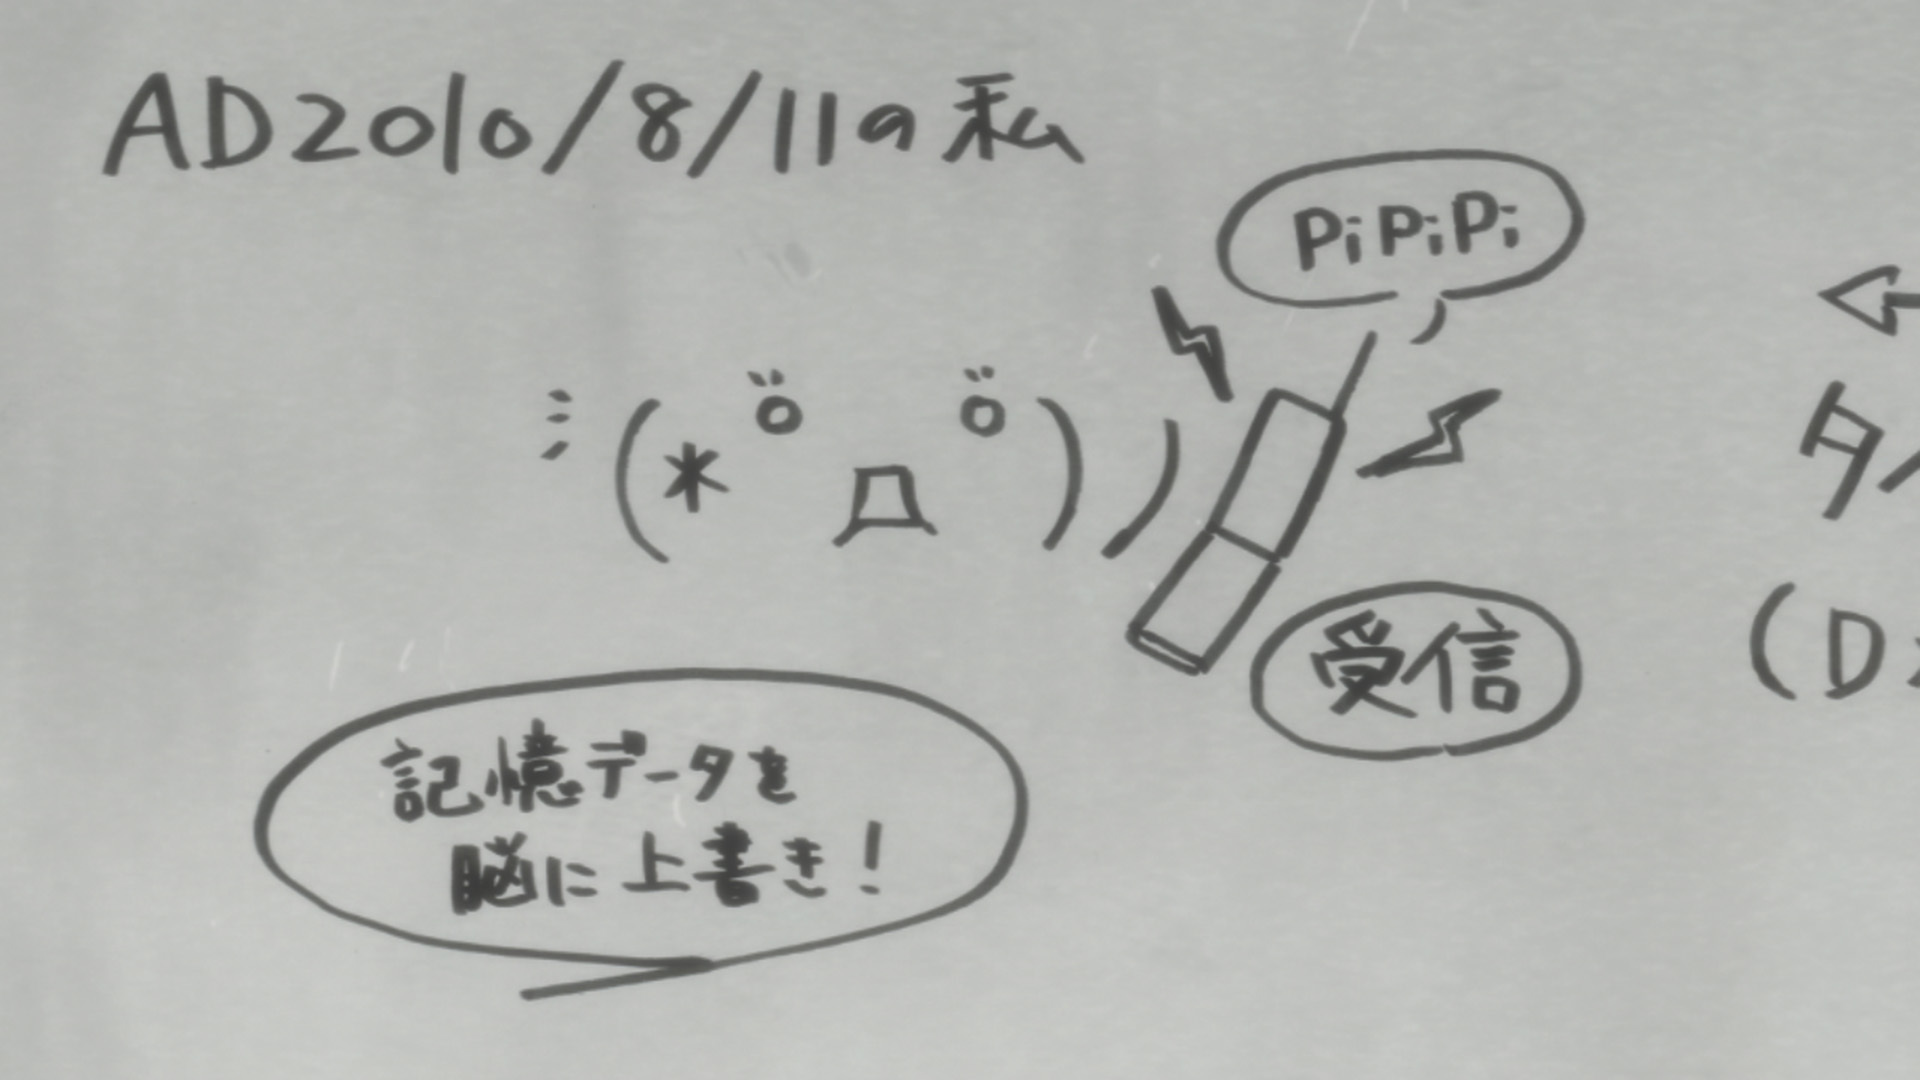 AD2010/8/11の私
PiPiPi
(* ö 口 ö ))
受信
記憶データを
脳に上書き!
タ
(D